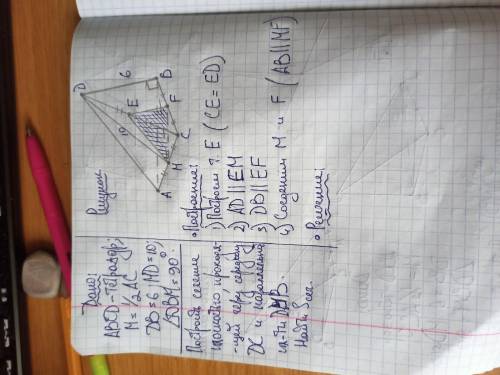 Дано:
ABCD-тетраэдр,
M = 1/2 AC
DB=6, MD=10,
∠DBM=90°
Построить сечение
плоскостью, проходя-
-щей через середину
DC и параллельно
пл-ти DMB.
Найти Sсеч.
Рисунок
D
6
B
E
10
F
C
M
A
• Построение:
1) Построим т. E (CE = ED)
2) AD || EM
3) DB || EF
4) Соединим M и F (AB || MF)
• Решение: